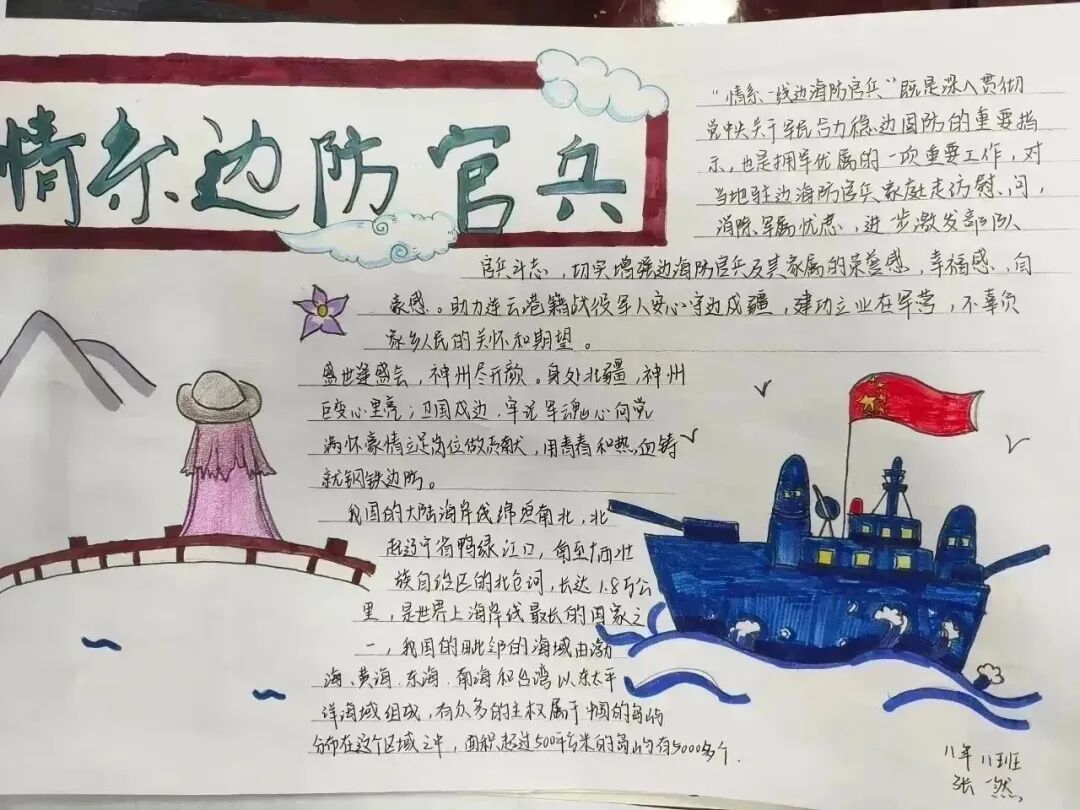 情系边防官兵
"情系一线边海防官兵"既是深入贯彻
党中央关于军民合力稳边固防的重要指
示，也是拥军优属的一项重要工作，对
当地驻边海防官兵家庭走访慰问，
消除军属忧虑，进步激发部队
官兵斗志，切实增强边海防官兵及其家属的荣誉感，幸福感，自
豪感。助力连云港籍战役军人安心守边戍疆，建功立业在军营，不辜负
家乡人民的关怀和期望。
盛世逢盛会，神州尽开颜。身处北疆，神州
巨变心里亮；卫国戍边，牢记军魂心向党
满怀豪情立足岗位做贡献，用青春和热血铸
就钢铁边防。
我国的大陆海岸线绵亘南北，北
起辽宁省鸭绿江口，南至广西壮
族自治区的北仑河，长达1.8万公
里，是世界上海岸线最长的国家之
一，我国的毗邻的海域由渤
海、黄海、东海、南海和台湾以东太平
洋海域组成，有众多的主权属于中国的岛屿
分布在这个区域之中，面积超过500平方米的岛屿有5000多个.
八年八班
张一然